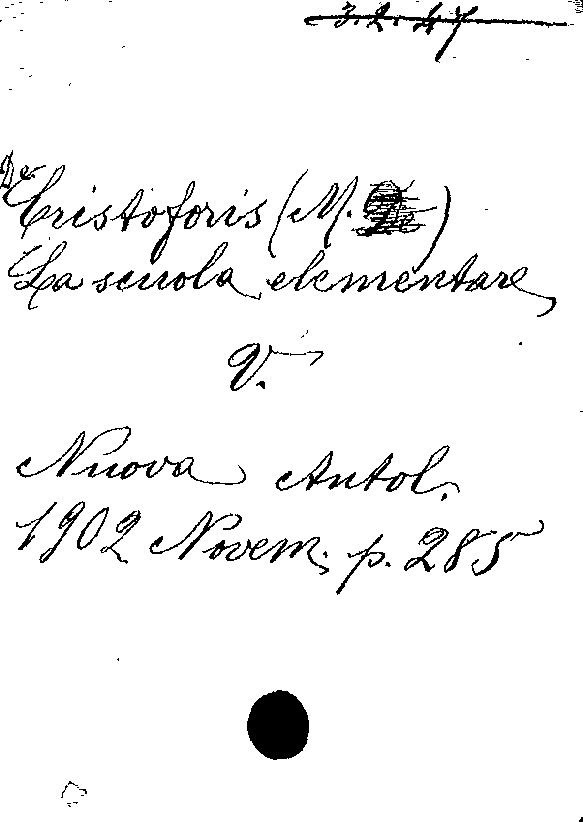 3.2.47
De Cristoforis (M. De)
La scuola elementare,
V.
Nuova Antol.
1902 Novem. p. 285